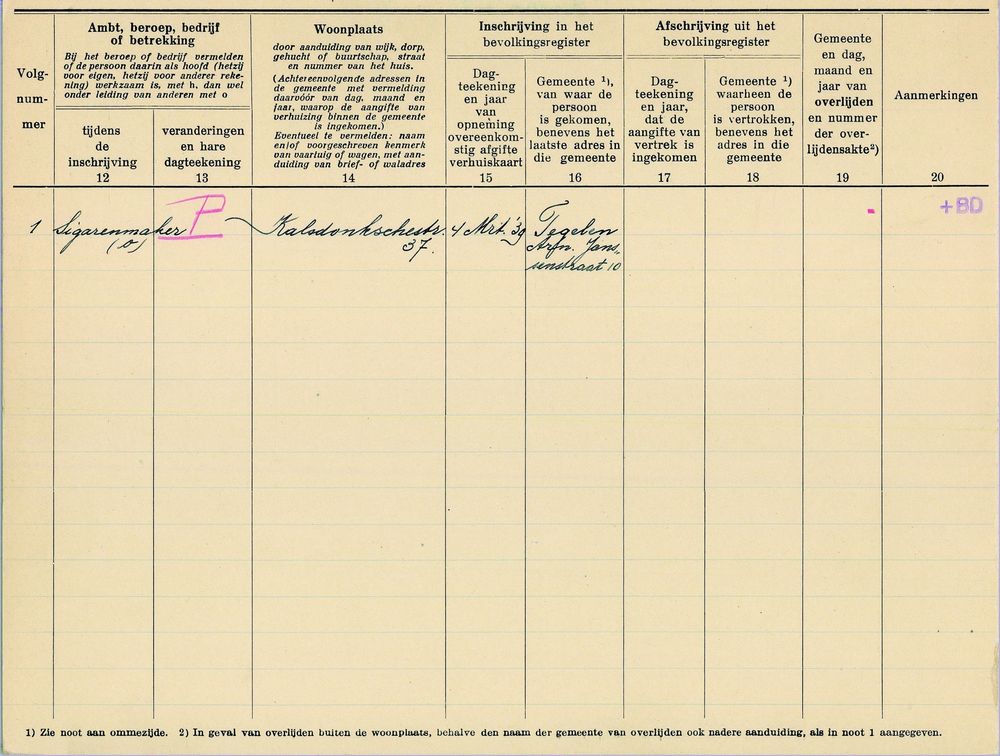 Volg-
num-
mer
Ambt, beroep, bedrijf
of betrekking
Bij het beroep of bedrijf vermelden
of de persoon daarin als hoofd (hetzij
voor eigen, hetzij voor anderer reke-
ning) werkzaam is, met h. dan wel
onder leiding van anderen met o
tijdens
de
inschrijving
12
veranderingen
en hare
dagteekening
13
Woonplaats
door aanduiding van wijk, dorp,
gehucht of buurtschap, straat
en nummer van het huis.
(Achtereenvolgende adressen in
de gemeente met vermelding
daarvóór van dag, maand en
jaar, waarop de aangifte van
verhuizing binnen de gemeente
is ingekomen.)
Eventueel te vermelden: naam
en/of voorgeschreven kenmerk
van vaartuig of wagen, met aan-
duiding van brief- of waladres
14
Inschrijving in het
bevolkingsregister
Dag-
teekening
en jaar
van
opneming
overeenkom-
stig afgifte
verhuiskaart
15
Gemeente 1),
van waar de
persoon
is gekomen,
benevens het
laatste adres in
die gemeente
16
Afschrijving uit het
bevolkingsregister
Dag-
teekening
en jaar,
dat de
aangifte van
vertrek is
ingekomen
17
Gemeente 1)
waarheen de
persoon
is vertrokken,
benevens het
adres in die
gemeente
18
Gemeente
en dag,
maand en
jaar van
overlijden
en nummer
der over-
lijdensakte2)
19
Aanmerkingen
20
+BD
1 Sigarenmaker P Kalsdonkschestr. 4 Mrt. '39 Tegelen
(o) 37. Arn. Jans-
senstraat 10
1) Zie noot aan ommezijde. 2) In geval van overlijden buiten de woonplaats, behalve den naam der gemeente van overlijden ook nadere aanduiding, als in noot 1 aangegeven.